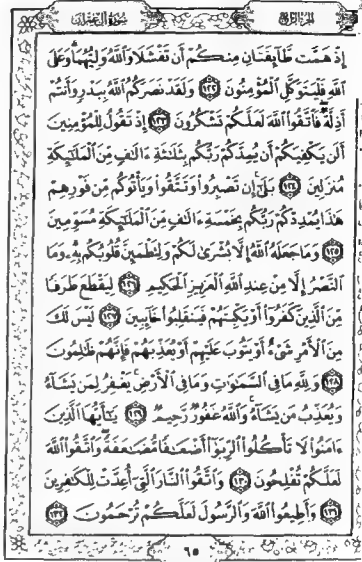 الجزء الرابع سورة آل عمران
إِذْ هَمَّت طَّآئِفَتَانِ مِنكُمْ أَن تَفْشَلَا وَٱللَّهُ وَلِيُّهُمَا ۗ وَعَلَى
ٱللَّهِ فَلْيَتَوَكَّلِ ٱلْمُؤْمِنُونَ ١٢٢ وَلَقَدْ نَصَرَكُمُ ٱللَّهُ بِبَدْرٍ وَأَنتُمْ
أَذِلَّةٌ ۖ فَٱتَّقُوا۟ ٱللَّهَ لَعَلَّكُمْ تَشْكُرُونَ ١٢٣ إِذْ تَقُولُ لِلْمُؤْمِنِينَ
أَلَن يَكْفِيَكُمْ أَن يُمِدَّكُمْ رَبُّكُم بِثَلَـٰثَةِ ءَالَـٰفٍ مِّنَ ٱلْمَلَـٰٓئِكَةِ
مُنزَلِينَ ١٢٤ بَلَىٰٓ ۚ إِن تَصْبِرُوا۟ وَتَتَّقُوا۟ وَيَأْتُوكُم مِّن فَوْرِهِمْ
هَـٰذَا يُمْدِدْكُمْ رَبُّكُم بِخَمْسَةِ ءَالَـٰفٍ مِّنَ ٱلْمَلَـٰٓئِكَةِ مُسَوِّمِينَ
١٢٥ وَمَا جَعَلَهُ ٱللَّهُ إِلَّا بُشْرَىٰ لَكُمْ وَلِتَطْمَئِنَّ قُلُوبُكُم بِهِۦ ۗ وَمَا
ٱلنَّصْرُ إِلَّا مِنْ عِندِ ٱللَّهِ ٱلْعَزِيزِ ٱلْحَكِيمِ ١٢٦ لِيَقْطَعَ طَرَفًا
مِّنَ ٱلَّذِينَ كَفَرُوٓا۟ أَوْ يَكْبِتَهُمْ فَيَنقَلِبُوا۟ خَآئِبِينَ ١٢٧ لَيْسَ لَكَ
مِنَ ٱلْأَمْرِ شَىْءٌ أَوْ يَتُوبَ عَلَيْهِمْ أَوْ يُعَذِّبَهُمْ فَإِنَّهُمْ ظَـٰلِمُونَ
١٢٨ وَلِلَّهِ مَا فِى ٱلسَّمَـٰوَٰتِ وَمَا فِى ٱلْأَرْضِ ۚ يَغْفِرُ لِمَن يَشَآءُ
وَيُعَذِّبُ مَن يَشَآءُ ۚ وَٱللَّهُ غَفُورٌ رَّحِيمٌ ١٢٩ يَـٰٓأَيُّهَا ٱلَّذِينَ
ءَامَنُوا۟ لَا تَأْكُلُوا۟ ٱلرِّبَوٰٓا۟ أَضْعَـٰفًا مُّضَـٰعَفَةً ۖ وَٱتَّقُوا۟ ٱللَّهَ
لَعَلَّكُمْ تُفْلِحُونَ ١٣٠ وَٱتَّقُوا۟ ٱلنَّارَ ٱلَّتِىٓ أُعِدَّتْ لِلْكَـٰفِرِينَ
١٣١ وَأَطِيعُوا۟ ٱللَّهَ وَٱلرَّسُولَ لَعَلَّكُمْ تُرْحَمُونَ ١٣٢
٦٥